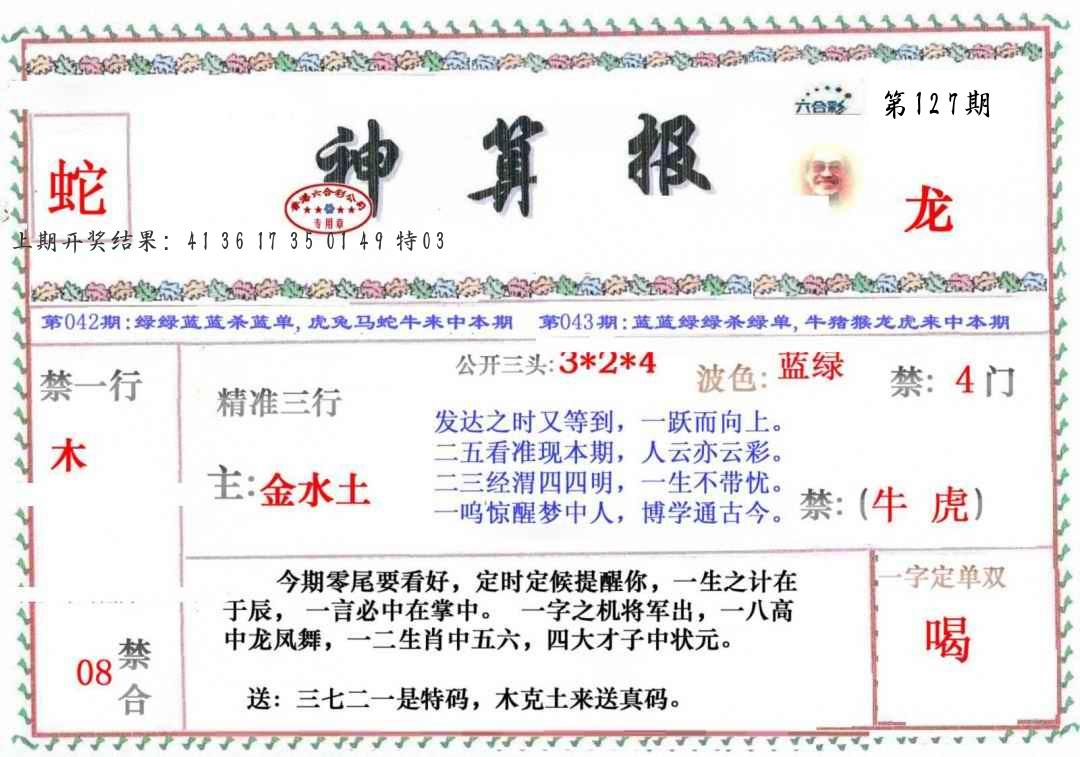 六合彩
第127期
神算报
蛇
香港六合彩公司
专用章
龙
上期开奖结果: 41 36 17 35 01 49 特03
第042期:绿绿蓝蓝杀蓝单,虎兔马蛇牛来中本期 第043期:蓝蓝绿绿杀绿单,牛猪猴龙虎来中本期
禁一行
木
精准三行
主:金水土
公开三头:3*2*4
波色:蓝绿
禁: 4门
发达之时又等到，一跃而向上。
二五看准现本期，人云亦云彩。
二三经渭四四明，一生不带忧。
一呜惊醒梦中人，博学通古今。
禁:(牛 虎)
今期零尾要看好，定时定候提醒你，一生之计在
于辰， 一言必中在掌中。 一字之机将军出，一八高
中龙凤舞，一二生肖中五六，四大才子中状元。
送：三七二一是特码，木克土来送真码。
一字定单双
喝
08
禁合